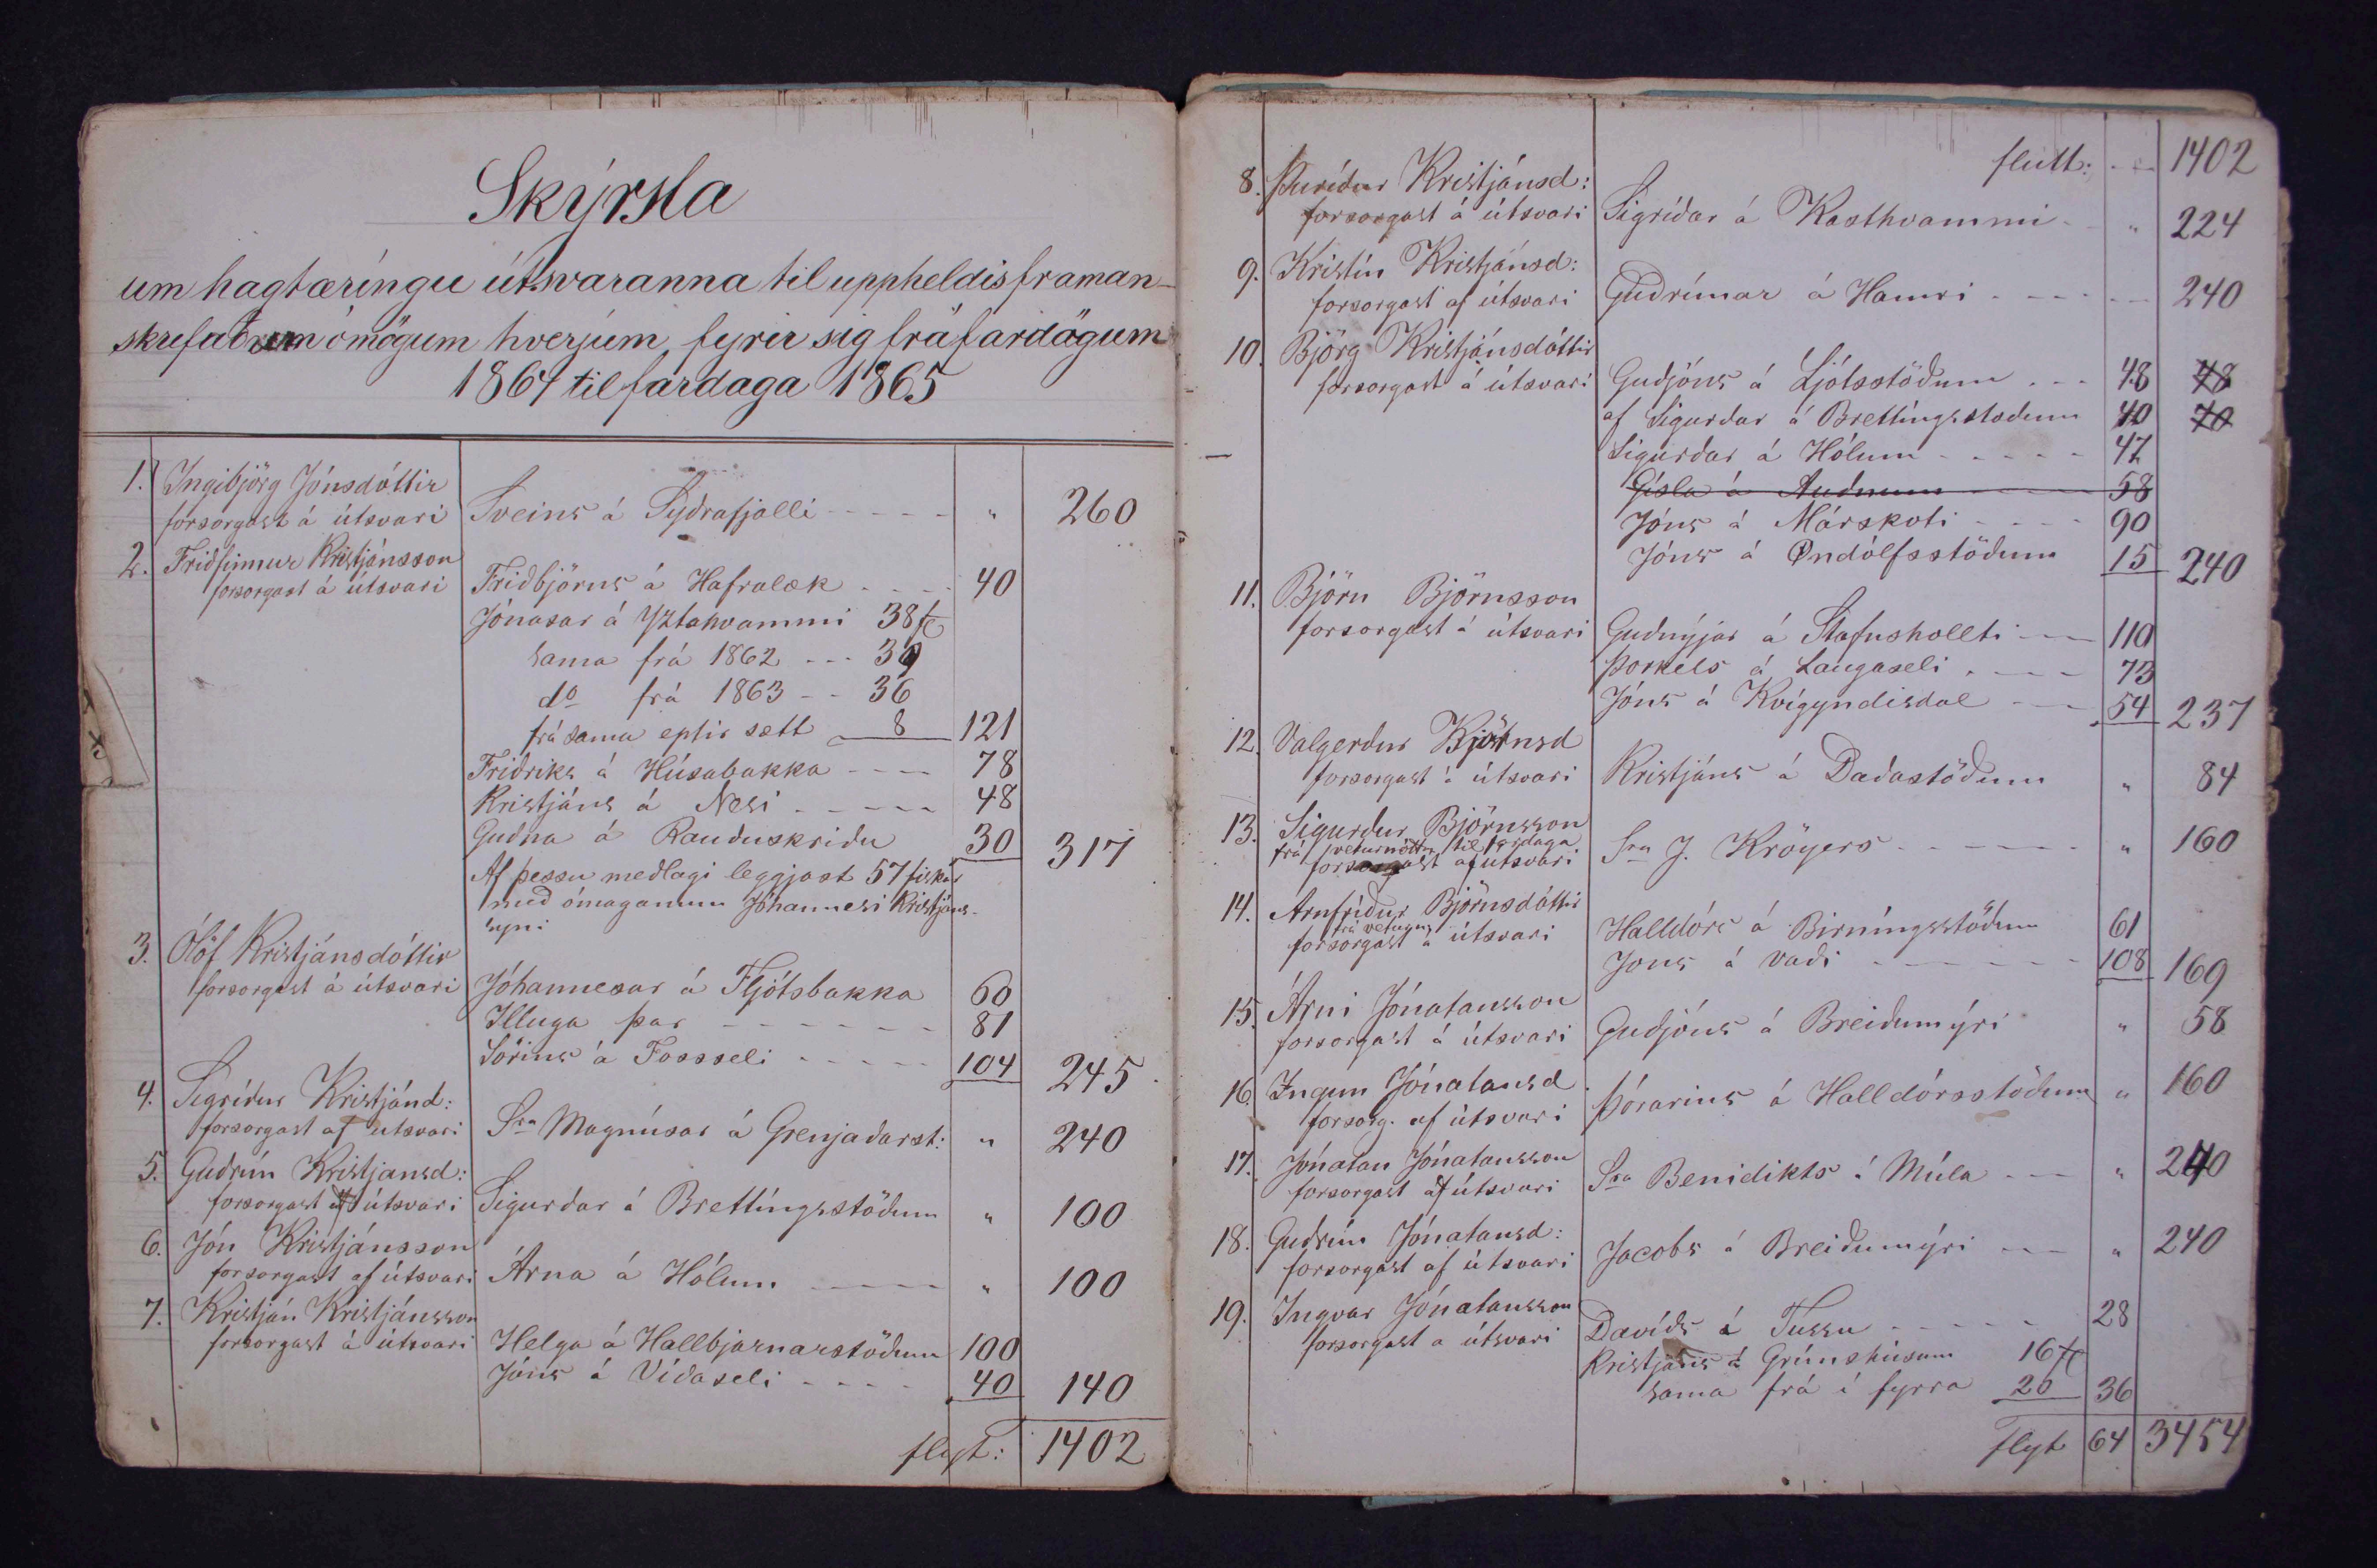 Skýrsla
um hagtæríngu útsvaranna til uppheldis framan-
skrifuðum ómögum hverjum fyrir sig frá fardögum
1864 til fardaga 1865
1. Ingibjörg Jónsdóttir
forsorgast á útsvari Sveins á Sýðrafjalli - - - - - " 260
2. Friðfinnur Kristjánsson
forsorgast á útsvari Friðbjörns á Hafralæk - - - - 40
Jónasar á Yztahvammi 38 f
sama frá 1862 - - - 39
do frá 1863 - - 36
frá sama eptir sætt 8 121
Friðriks á Húsabakka - - - - 78
Kristjáns á Nesi - - - - - 48
Guðna á Rauðuskriðu 30 317
Af þessu meðlagi leggjast 57 fiskar
með ómaganum Jóhannesi Kristjáns-
syni
3. Ólöf Kristjánsdóttir
forsorgast á útsvari Jóhannesar á Fljótsbakka 60
Illuga þar - - - - - - - 81
Sörins á Fossseli - - - - - 104 245
4. Sigríður Kristjánd:
forsorgast af útsvari Sra Magnúsar á Grenjaðarst: " 240
5. Guðrún Kristjansd:
forsorgast af útsvari Sigurðar á Brettíngsstöðum " 100
6. Jón Kristjánsson
forsorgast af útsvari Árna á Hólum - - - - " 100
7. Kristján Kristjánsson
forsorgast á útsvari Helga á Hallbjarnarstöðum 100
Jóns á Víðaseli - - - - 40 140
flyt: 1402
flutt: - - 1402
8. Þuríður Kristjánsd:
forsorgast á útsvari Sigríðar á Kasthvammi - - " 224
9. Kristín Kristjánsd:
forsorgast af útsvari Guðrúnar á Hamri - - - - - - 240
10. Björg Kristjánsdóttir
forsorgast á útsvari Guðjóns á Ljótsstöðum - - - 48 48
af Sigurðar á Brettíngsstöðum 40 40
Sigurðar á Hólum - - - - - 47
Gísla á Auðnum - - - - 58
Jóns á Márskoti - - - - 90
Jóns á Öndólfsstöðum 15 240
11. Björn Björnsson
forsorgast á útsvari Guðnýjar á Stafnshollti - - - 110
Þorkels á Laugaseli - - - - 73
Jóns á Kvígyndisdal - - - 54 237
12. Valgerður Björnsd
forsorgast á útsvari Kristjáns á Daðastöðum " 84
13. Sigurður Björnsson
frá veturnóttum til fardaga
forsorgast af útsvari Sra J. Kröyers - - - - - - - " 160
14. Arnfríður Björnsdóttir
forsorgast á útsvari Halldórs á Birníngsstöðum 61
Jons á Vaði - - - - - - 108 169
15. Árni Jónatansson
forsorgast á útsvari Guðjóns á Breiðumýri " 58
16. Ingun Jónatansd
forsorg. af útsvari Þórarins á Halldórsstöðum " 160
17. Jónatan Jónatansson
forsorgast af útsvari Sra Benidikts á Múla - - - " 240
18. Guðrún Jónatansd:
forsorgast af útsvari Jacobs á Breiðumýri - - - " 240
19. Ingvar Jónatansson
forsorgast a útsvari Davíðs á Tussu - - - - - 28
Kristjáns á Grímshúsum 16 f
sama frá í fyrra 20 36
Flyt 64 3454